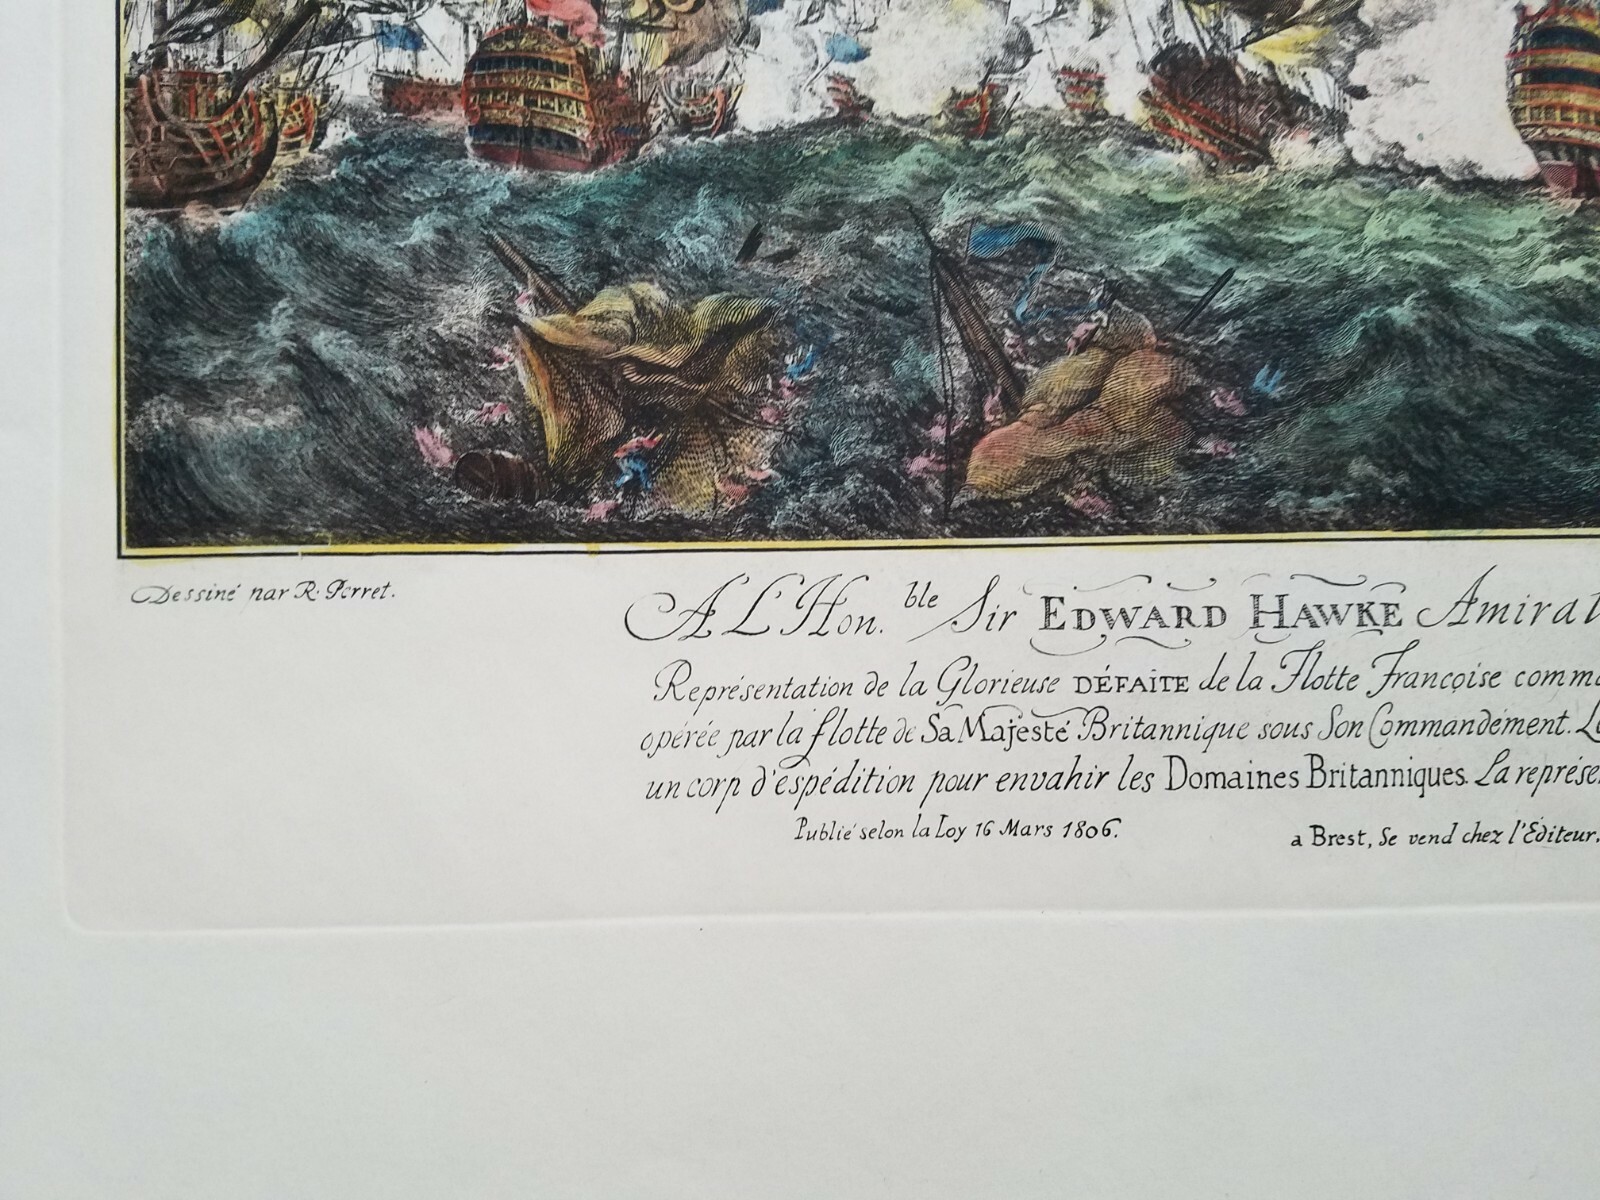 Dessiné par R. Perret.
A L Hon.ble Sir EDWARD HAWKE Amiral
Représentation de la Glorieuse DÉFAITE de la Flotte Françoise comma
opérée par la flotte de Sa Majesté Britannique sous Son Commandement. Le
un corp d'espédition pour envahir les Domaines Britanniques. La représe
Publié selon la Loy 16 Mars 1806.
a Brest, Se vend chez l'Editeur.